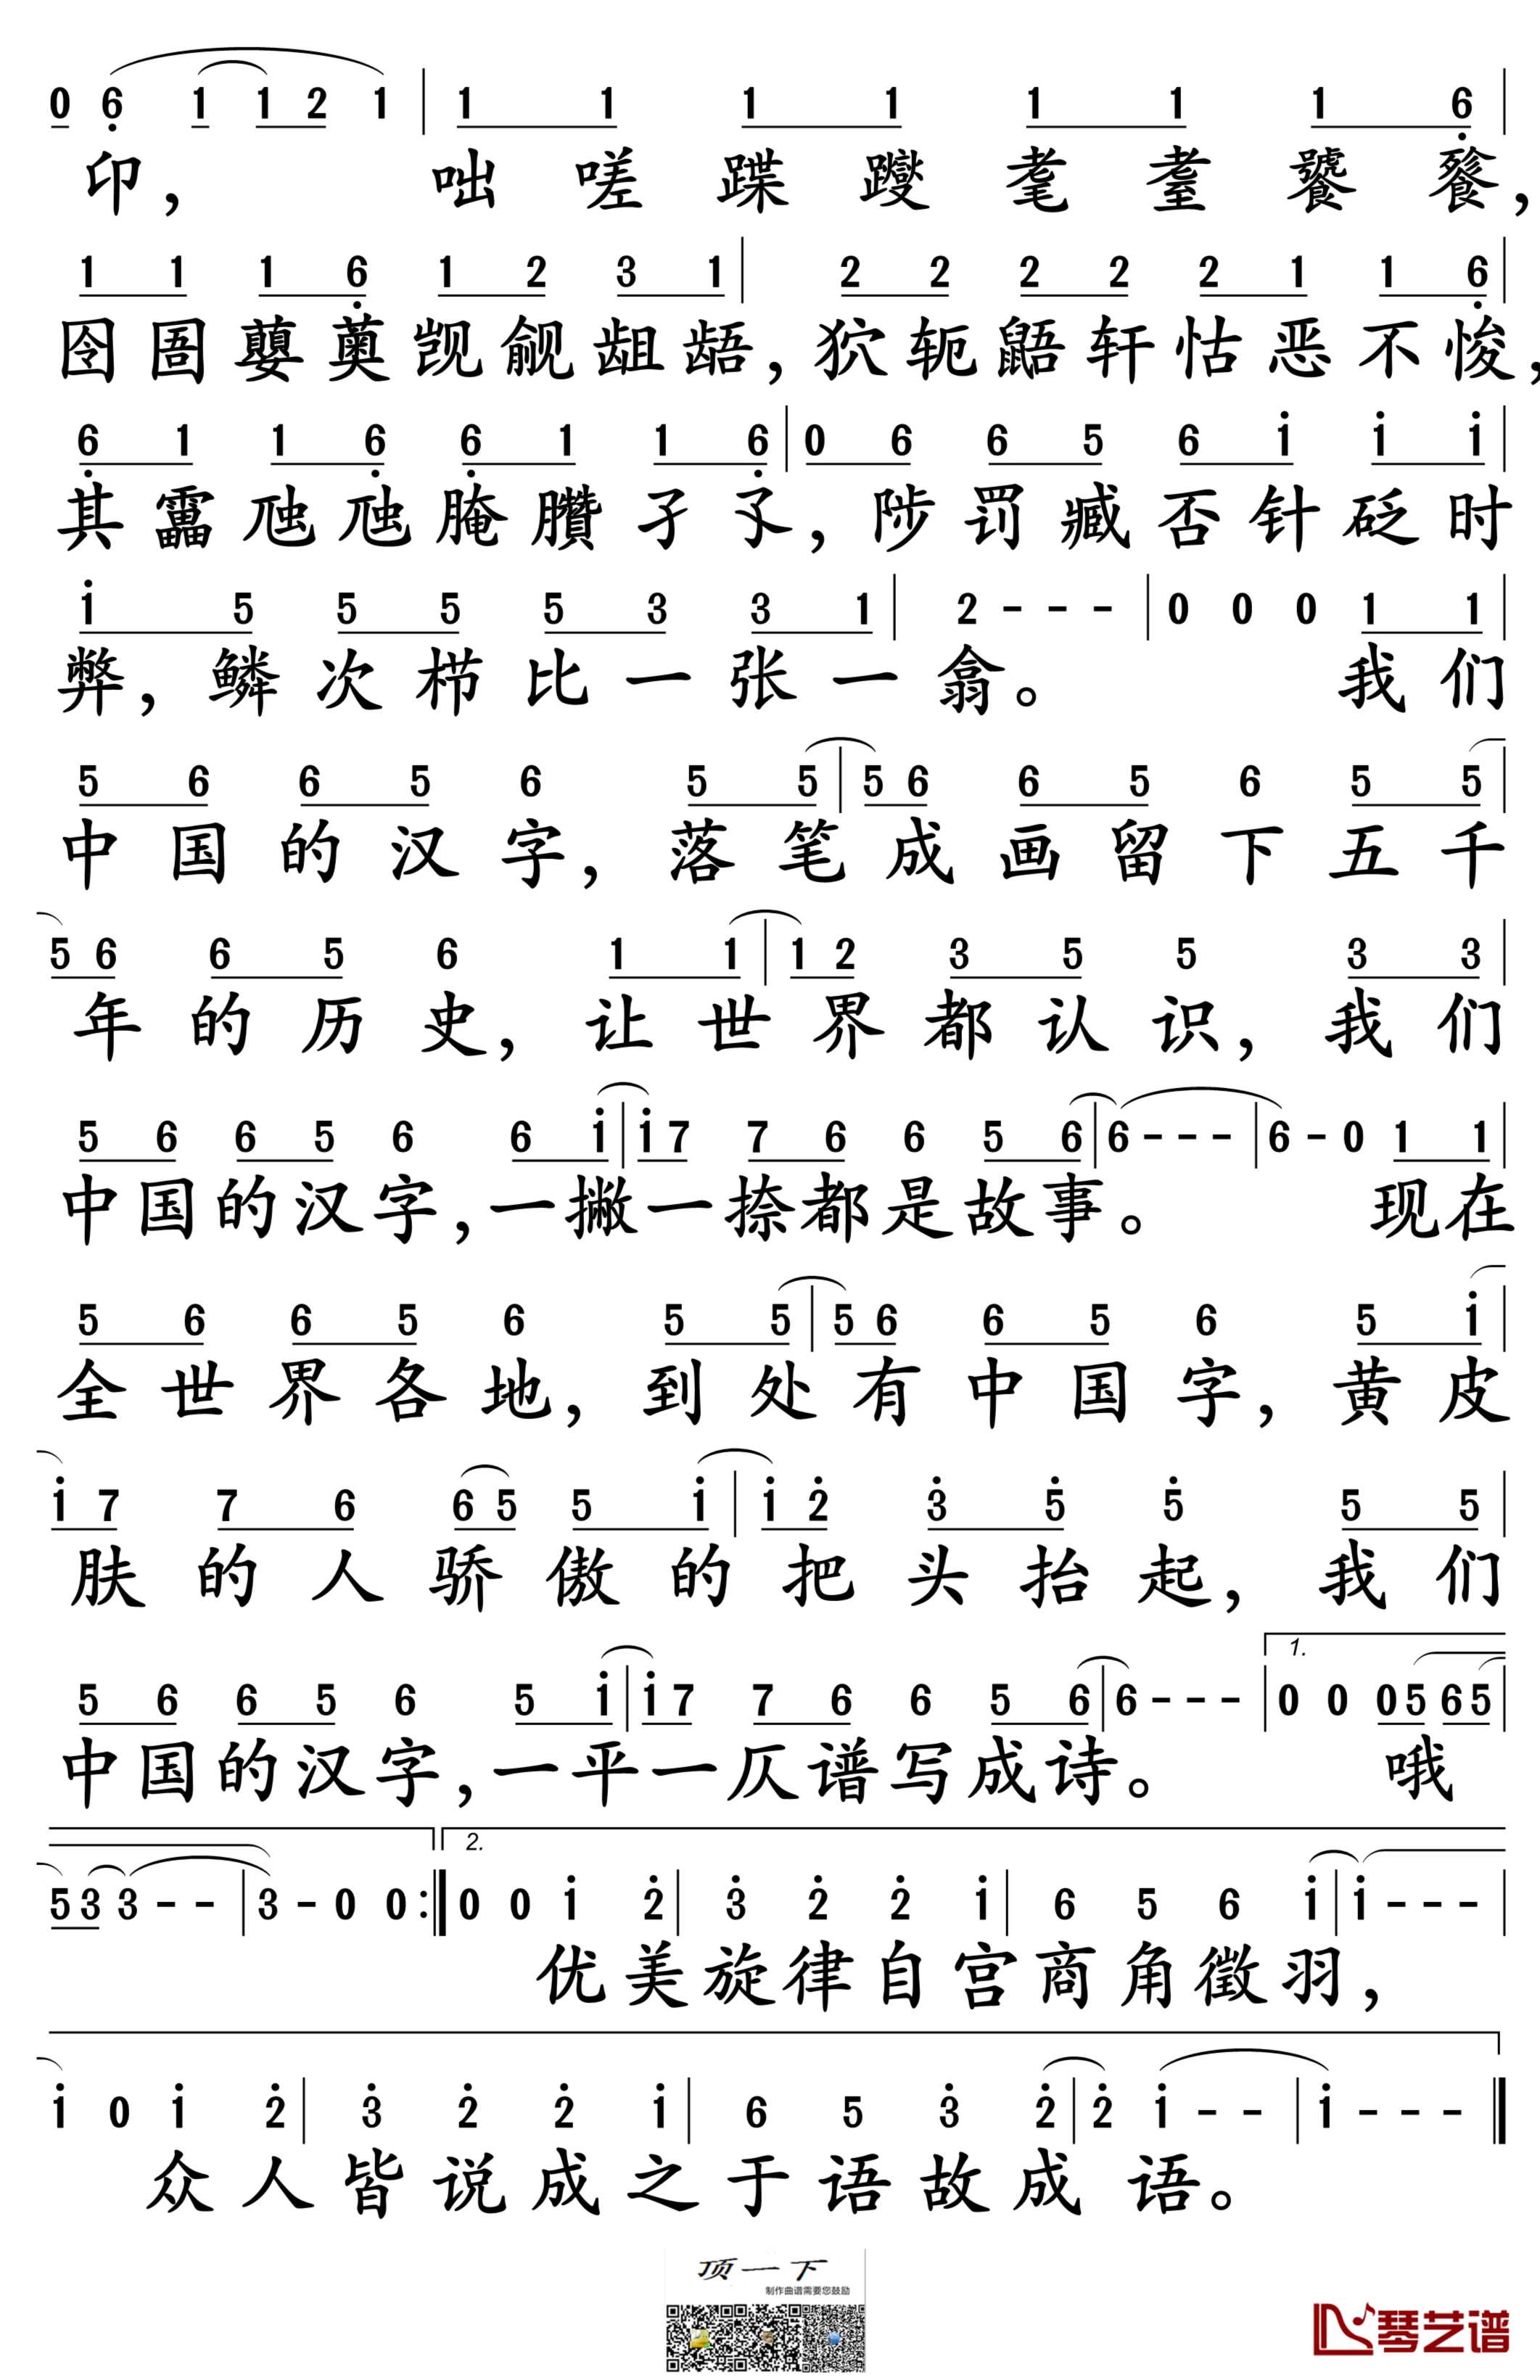 0 6 1 1 2 1 | 1 1 1 1 1 1 1 6 |
印, 咄嗟蹀躞耄耋饕餮,
1 1 1 6 1 2 3 1 | 2 2 2 2 2 1 1 6 |
囹圄蘡薁觊觎龃龉,狖轭鼯轩怙恶不悛,
6 1 1 6 6 1 1 6 | 0 6 6 5 6 i i i |
其靁虺虺腌臢孑孓,陟罚臧否针砭时
i 5 5 5 5 3 3 1 | 2 - - - | 0 0 0 1 1 |
弊,鳞次栉比一张一翕。 我们
5 6 6 5 6 5 5 | 5 6 6 5 6 5 5 |
中国的汉字,落笔成画留下五千
5 6 6 5 6 1 1 | 1 2 3 5 5 3 3 |
年的历史,让世界都认识,我们
5 6 6 5 6 6 i | i 7 7 6 6 5 6 | 6 - - - | 6 - 0 1 1 |
中国的汉字,一撇一捺都是故事。 现在
5 6 6 5 6 5 5 | 5 6 6 5 6 5 i |
全世界各地,到处有中国字,黄皮
i 7 7 6 6 5 5 i | i 2 3 5 5 5 5 |
肤的人骄傲的把头抬起,我们
1.
5 6 6 5 6 5 i | i 7 7 6 6 5 6 | 6 - - - | 0 0 0 5 6 5 |
中国的汉字,一平一仄谱写成诗。 哦
2.
5 3 3 - - | 3 - 0 0 :| 0 0 i 2 | 3 2 2 i | 6 5 6 i | i - - - |
优美旋律自宫商角徵羽,
i 0 i 2 | 3 2 2 i | 6 5 3 2 | 2 i - - | i - - - ‖
众人皆说成之于语故成语。
顶一下
制作曲谱需要您鼓励
琴艺谱